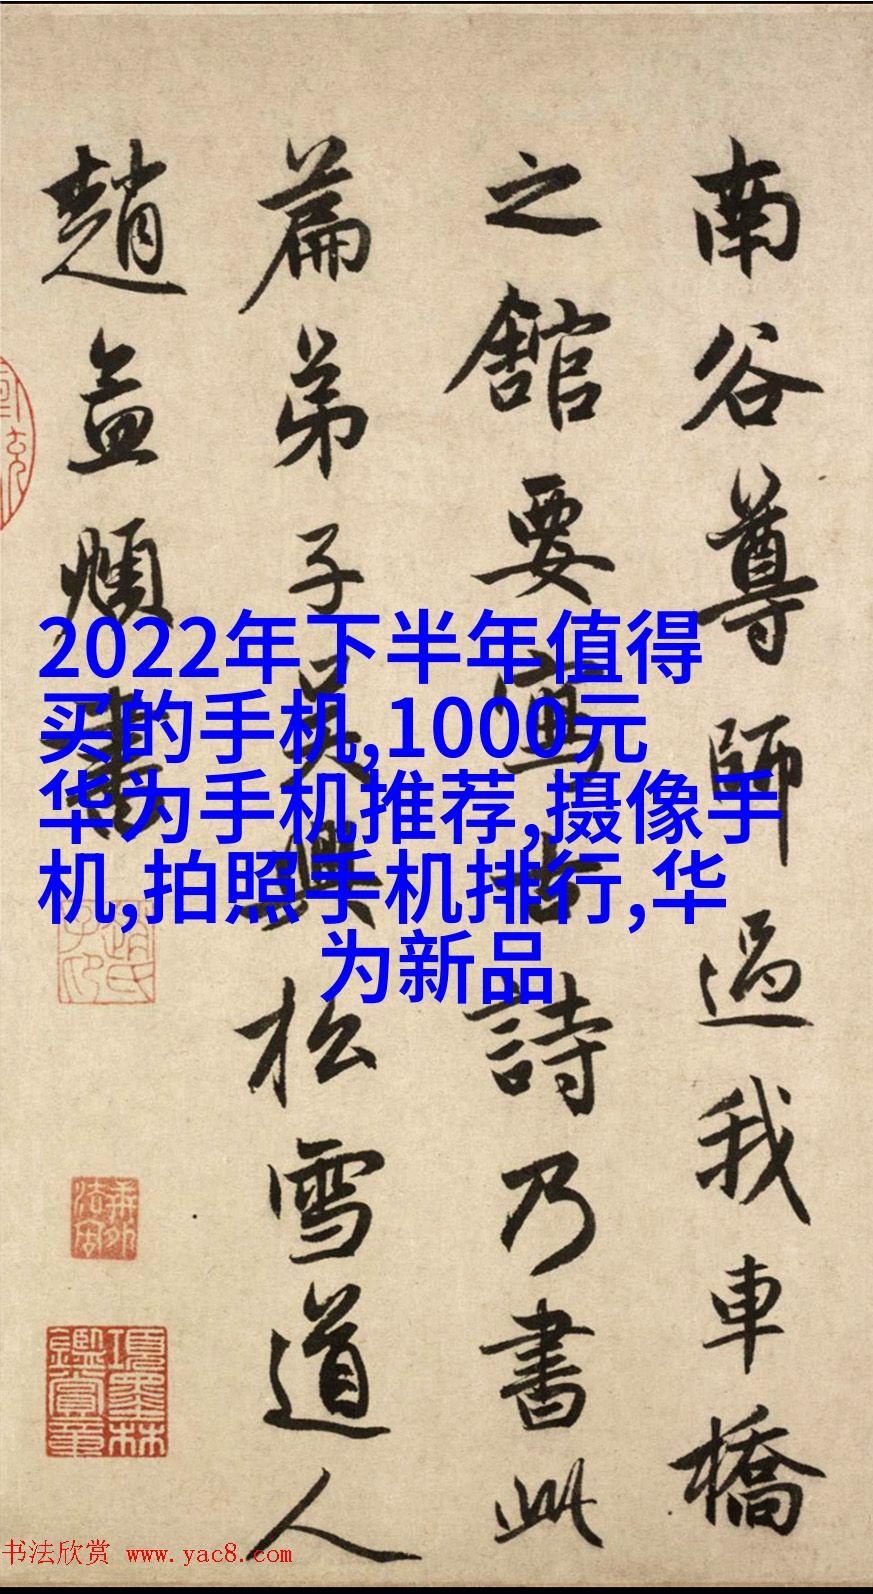 南谷尊師過我車橋
之舘要寫古詩乃書此
篇弟子吳興松雪道人
趙孟頫書
2022年下半年值得
买的手机,1000元
华为手机推荐,摄像手
机,拍照手机排行,华
为新品
趙氏子印
項墨林鑑賞章
书法欣赏 www.yac8.com